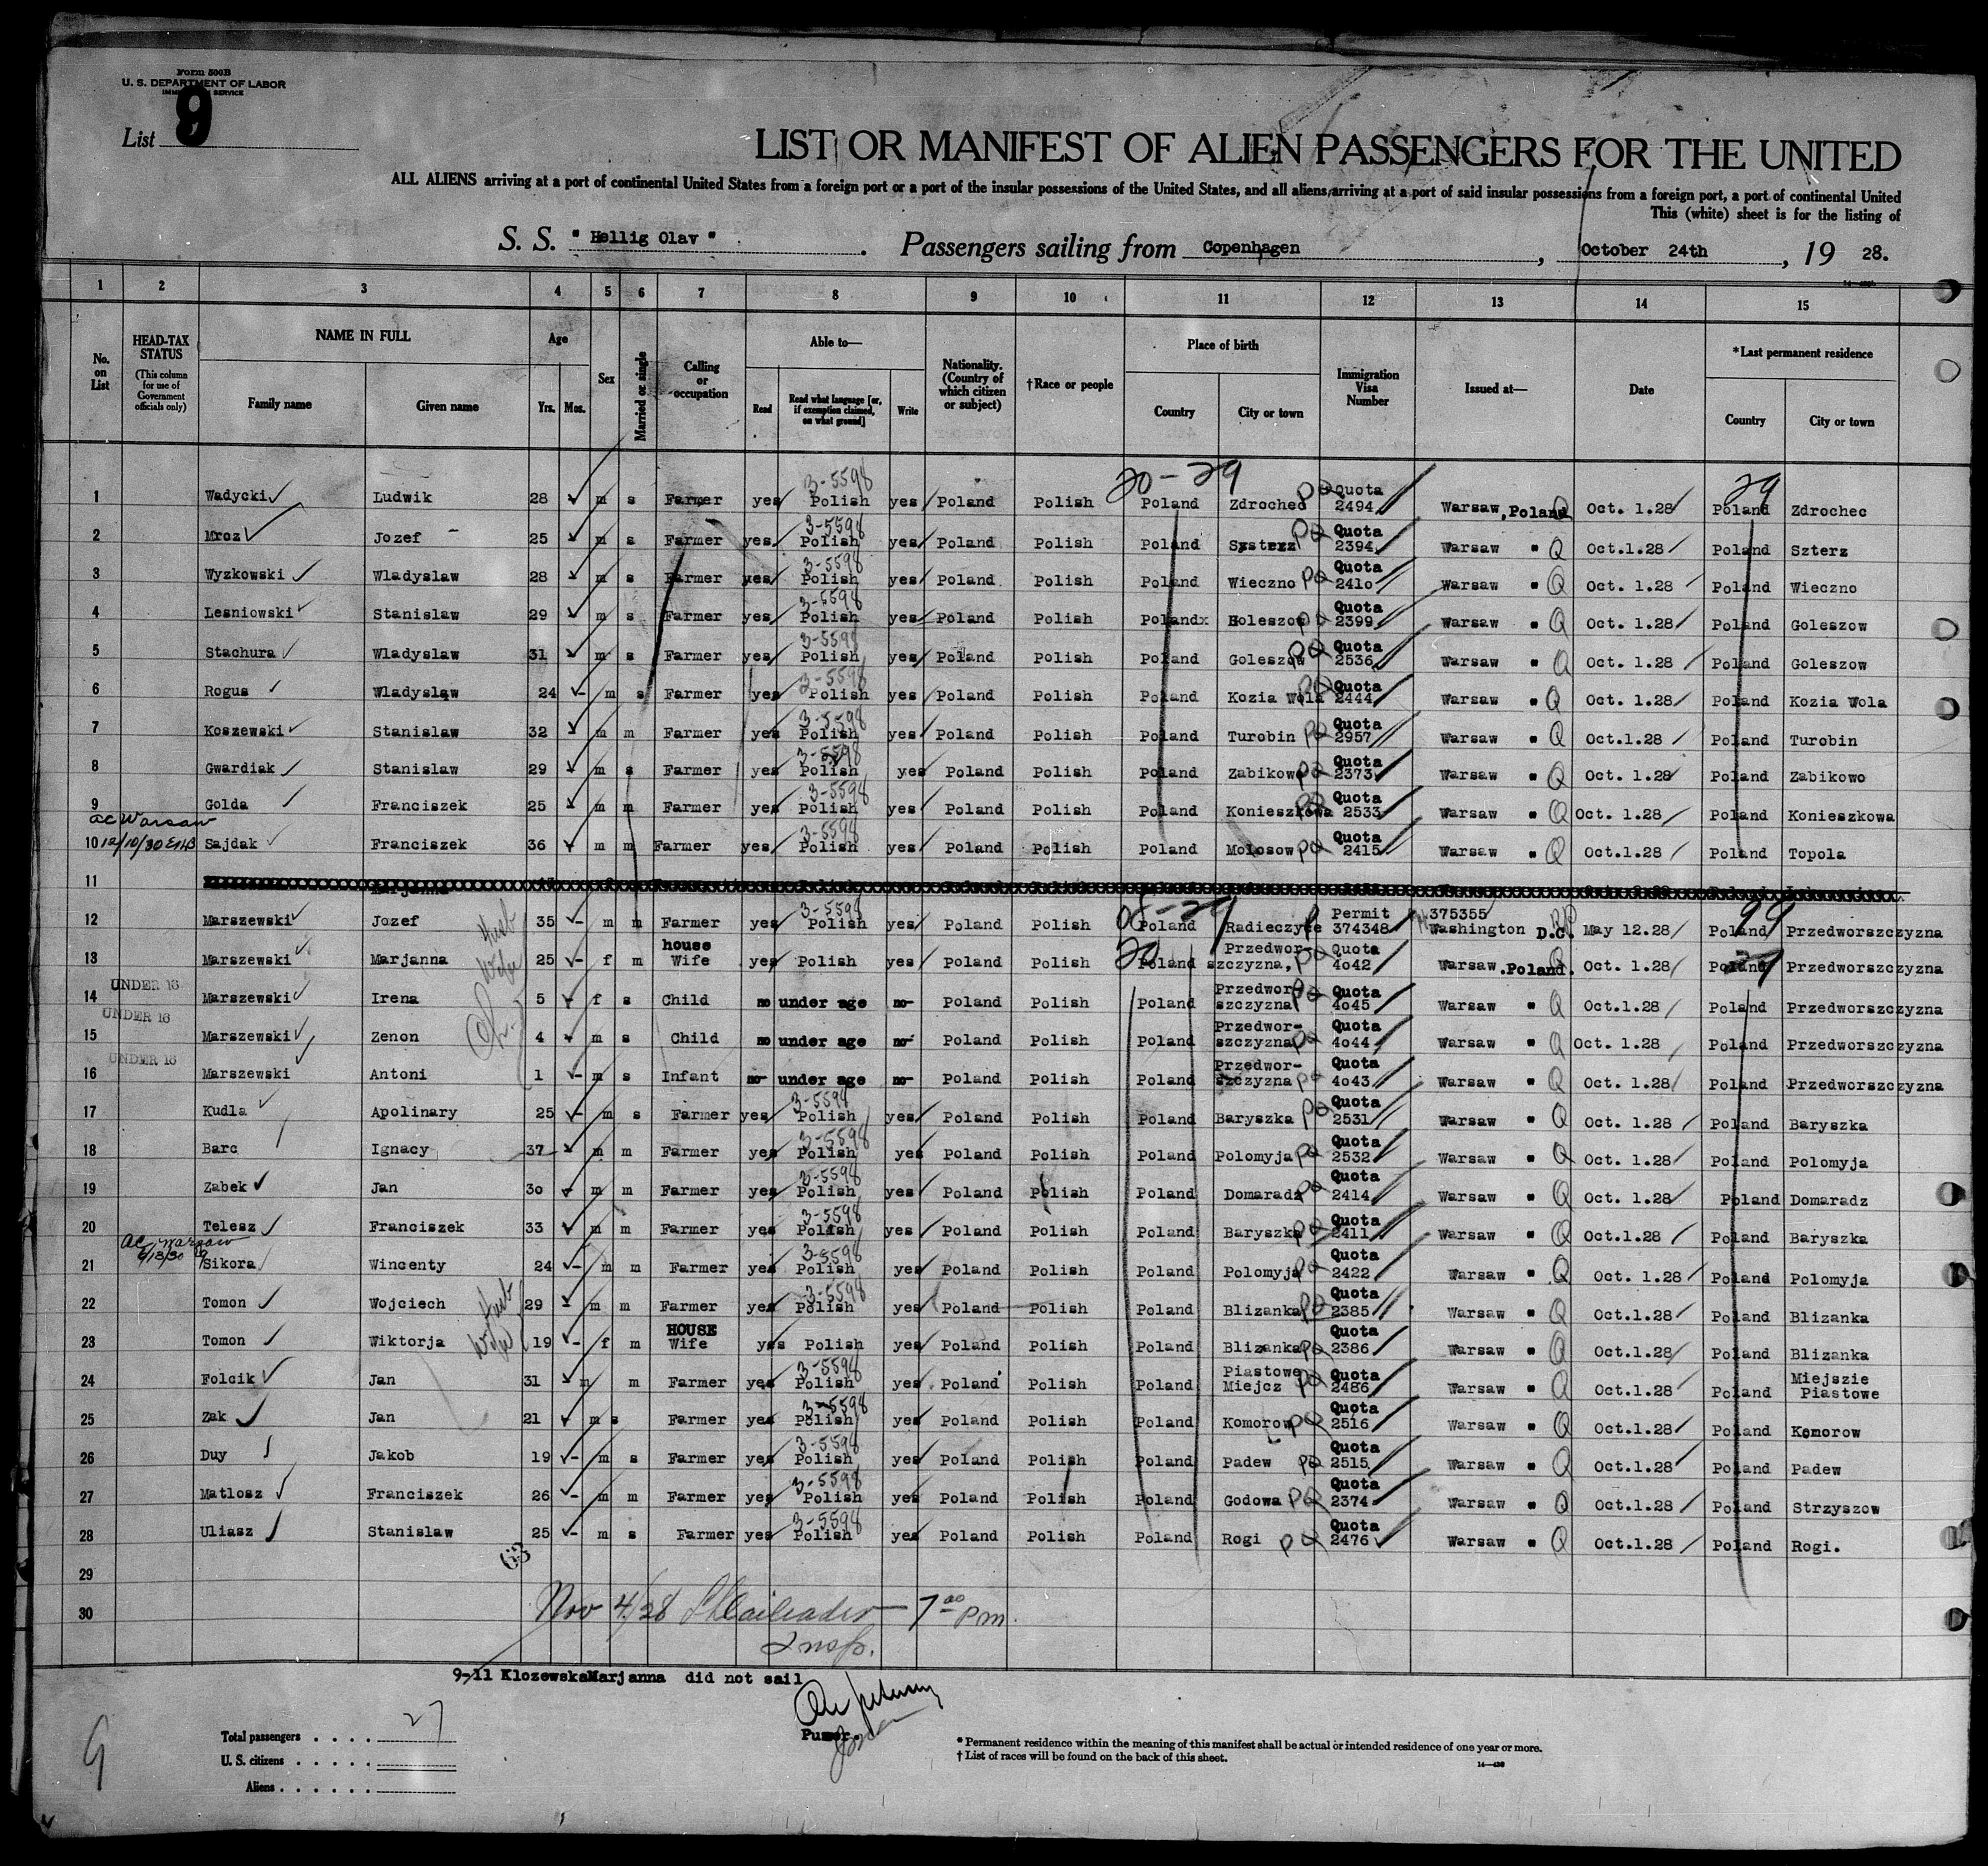 Form 500B
U. S. DEPARTMENT OF LABOR
IMMIGRATION SERVICE
List 9
LIST OR MANIFEST OF ALIEN PASSENGERS FOR THE UNITED
ALL ALIENS arriving at a port of continental United States from a foreign port or a port of the insular possessions of the United States, and all aliens arriving at a port of said insular possessions from a foreign port, a port of continental United
This (white) sheet is for the listing of
S. S. "Hellig Olav". Passengers sailing from Copenhagen, October 24th, 19 28.
1 2 3 4 5 6 7 8 9 10 11 12 13 14 15
No. on List
HEAD-TAX STATUS (This column for use of Government officials only)
NAME IN FULL Family name Given name
Age Yrs. Mos.
Sex
Married or single
Calling or occupation
Able to— Read Read what language [or, if exemption claimed, on what ground] Write
Nationality. (Country of which citizen or subject)
†Race or people
Place of birth Country City or town
Immigration Visa Number
Issued at—
Date
*Last permanent residence Country City or town
20-29 29
1 Wadycki Ludwik 28 m s Farmer yes 3-5598 Polish yes Poland Polish Poland Zdrochec PQ Quota 2494 Warsaw, Poland Q Oct. 1.28 Poland Zdrochec
2 Mroz Jozef 25 m s Farmer yes 3-5598 Polish yes Poland Polish Poland PQ Quota 2394 Warsaw " Q Oct.1.28 Poland Szterz
3 Wyzkowski Wladyslaw 28 m s Farmer yes 3-5598 Polish yes Poland Polish Poland Wieczno PQ Quota 241o Warsaw " Q Oct. 1.28 Poland Wieczno
4 Lesniowski Stanislaw 29 m s Farmer yes 3-5598 Polish yes Poland Polish Polandx Goleszow PQ Quota 2399 Warsaw " Q Oct. 1.28 Poland Goleszow
5 Stachura Wladyslaw 31 m s Farmer yes 3-5598 Polish yes Poland Polish Poland Goleszow PQ Quota 2536 Warsaw " Q Oct. 1.28 Poland Goleszow
6 Rogus Wladyslaw 24 m s Farmer yes 3-5598 Polish yes Poland Polish Poland Kozia Wola PQ Quota 2444 Warsaw " Q Oct. 1.28 Poland Kozia Wola
7 Koszewski Stanislaw 32 m m Farmer yes 3-5598 Polish yes Poland Polish Poland Turobin PQ Quota 2957 Warsaw " Q Oct.1.28 Poland Turobin
8 Gwardiak Stanislaw 29 m s Farmer yes 3-5598 Polish yes Poland Polish Poland Zabikowo PQ Quota 2373 Warsaw " Q Oct. 1.28 Poland Zabikowo
9 Golda Franciszek 25 m m Farmer yes 3-5598 Polish yes Poland Polish Poland Konieszkowa PQ Quota 2533 Warsaw " Q Oct. 1.28 Poland Konieszkowa
ac Warsaw
10 12/10/30 Sajdak Franciszek 36 m m Farmer yes 3-5598 Polish yes Poland Polish Poland Molosow PQ Quota 2415 Warsaw " Q Oct.1.28 Poland Topola
11
12 Marszewski Jozef 35 m m Farmer yes 3-5598 Polish yes Poland Polish Poland Radieczyce Permit 374348 375355 Washington D.C. May 12.28 Poland Przedworszczyzna
13 Marszewski Marjanna 25 f m house Wife yes Polish yes Poland Polish Poland Przedworszczyzna, PQ Quota 4o42 Warsaw.Poland. Q Oct. 1.28 Poland Przedworszczyzna
UNDER 16
14 Marszewski Irena 5 f s Child no under age no Poland Polish Poland Przedworszczyzna PQ Quota 4o45 Warsaw " Q Oct.1.28 Poland Przedworszczyzna
UNDER 16
15 Marszewski Zenon 4 m s Child no under age no Poland Polish Poland Przedwor-szczyzna PQ Quota 4o44 Warsaw " Q Oct. 1.28 Poland Przedworszczyzna
UNDER 16
16 Marszewski Antoni 1 m s Infant no under age no Poland Polish Poland Przedwor-szczyzna PQ Quota 4o43 Warsaw " Q Oct. 1.28 Poland Przedworszczyzna
17 Kudla Apolinary 25 m s Farmer yes 3-5598 Polish yes Poland Polish Poland Baryszka PQ Quota 2531 Warsaw " Q Oct. 1.28 Poland Baryszka
18 Barc Ignacy 37 m m Farmer yes 3-5598 Polish yes Poland Polish Poland Polomyja PQ Quota 2532 Warsaw " Q Oct. 1.28 Poland Polomyja
19 Zabek Jan 3o m m Farmer yes 3-5598 Polish yes Poland Polish Poland Domaradz PQ Quota 2414 Warsaw " Q Oct. 1.28 Poland Domaradz
20 Telesz Franciszek 33 m m Farmer yes 3-5598 Polish yes Poland Polish Poland Baryszka PQ Quota 2411 Warsaw " Q Oct.1.28 Poland Baryszka
ac Warsaw
21 Sikora Wincenty 24 m m Farmer yes 3-5598 Polish yes Poland Polish Poland Polomyja PQ Quota 2422 Warsaw " Q Oct. 1.28 Poland Polomyja
22 Tomon Wojciech 29 m m Farmer yes 3-5598 Polish yes Poland Polish Poland Blizanka PQ Quota 2385 Warsaw " Q Oct.1.28 Poland Blizanka
23 Tomon Wiktorja 19 f m HOUSE Wife yes Polish yes Poland Polish Poland Blizanka PQ Quota 2386 Warsaw " Q Oct.1.28 Poland Blizanka
24 Folcik Jan 31 m m Farmer yes 3-5598 Polish yes Poland Polish Poland Piastowe Miejcz PQ Quota 2486 Warsaw " Q Oct.1.28 Poland Miejszie Piastowe
25 Zak Jan 21 m s Farmer yes 3-5598 Polish yes Poland Polish Poland Komorow PQ Quota 2516 Warsaw " Q Oct.1.28 Poland Komorow
26 Duy Jakob 19 m s Farmer yes 3-5598 Polish yes Poland Polish Poland Padew PQ Quota 2515 Warsaw " Q Oct.1.28 Poland Padew
27 Matlosz Franciszek 26 m m Farmer yes 3-5598 Polish yes Poland Polish Poland Godowa PQ Quota 2374 Warsaw " Q Oct.1.28 Poland Strzyszow
28 Uliasz Stanislaw 25 m s Farmer yes 3-5598 Polish yes Poland Polish Poland Rogi PQ Quota 2476 Warsaw " Q Oct.1.28 Poland Rogi.
29
30 Nov 4/28 7 00 Pm
Insp.
9-11 KlozewskaMarjanna did not sail
Total passengers . . . . 27
U. S. citizens . . . . . .
Aliens . . . . . .
9
* Permanent residence within the meaning of this manifest shall be actual or intended residence of one year or more.
† List of races will be found on the back of this sheet.